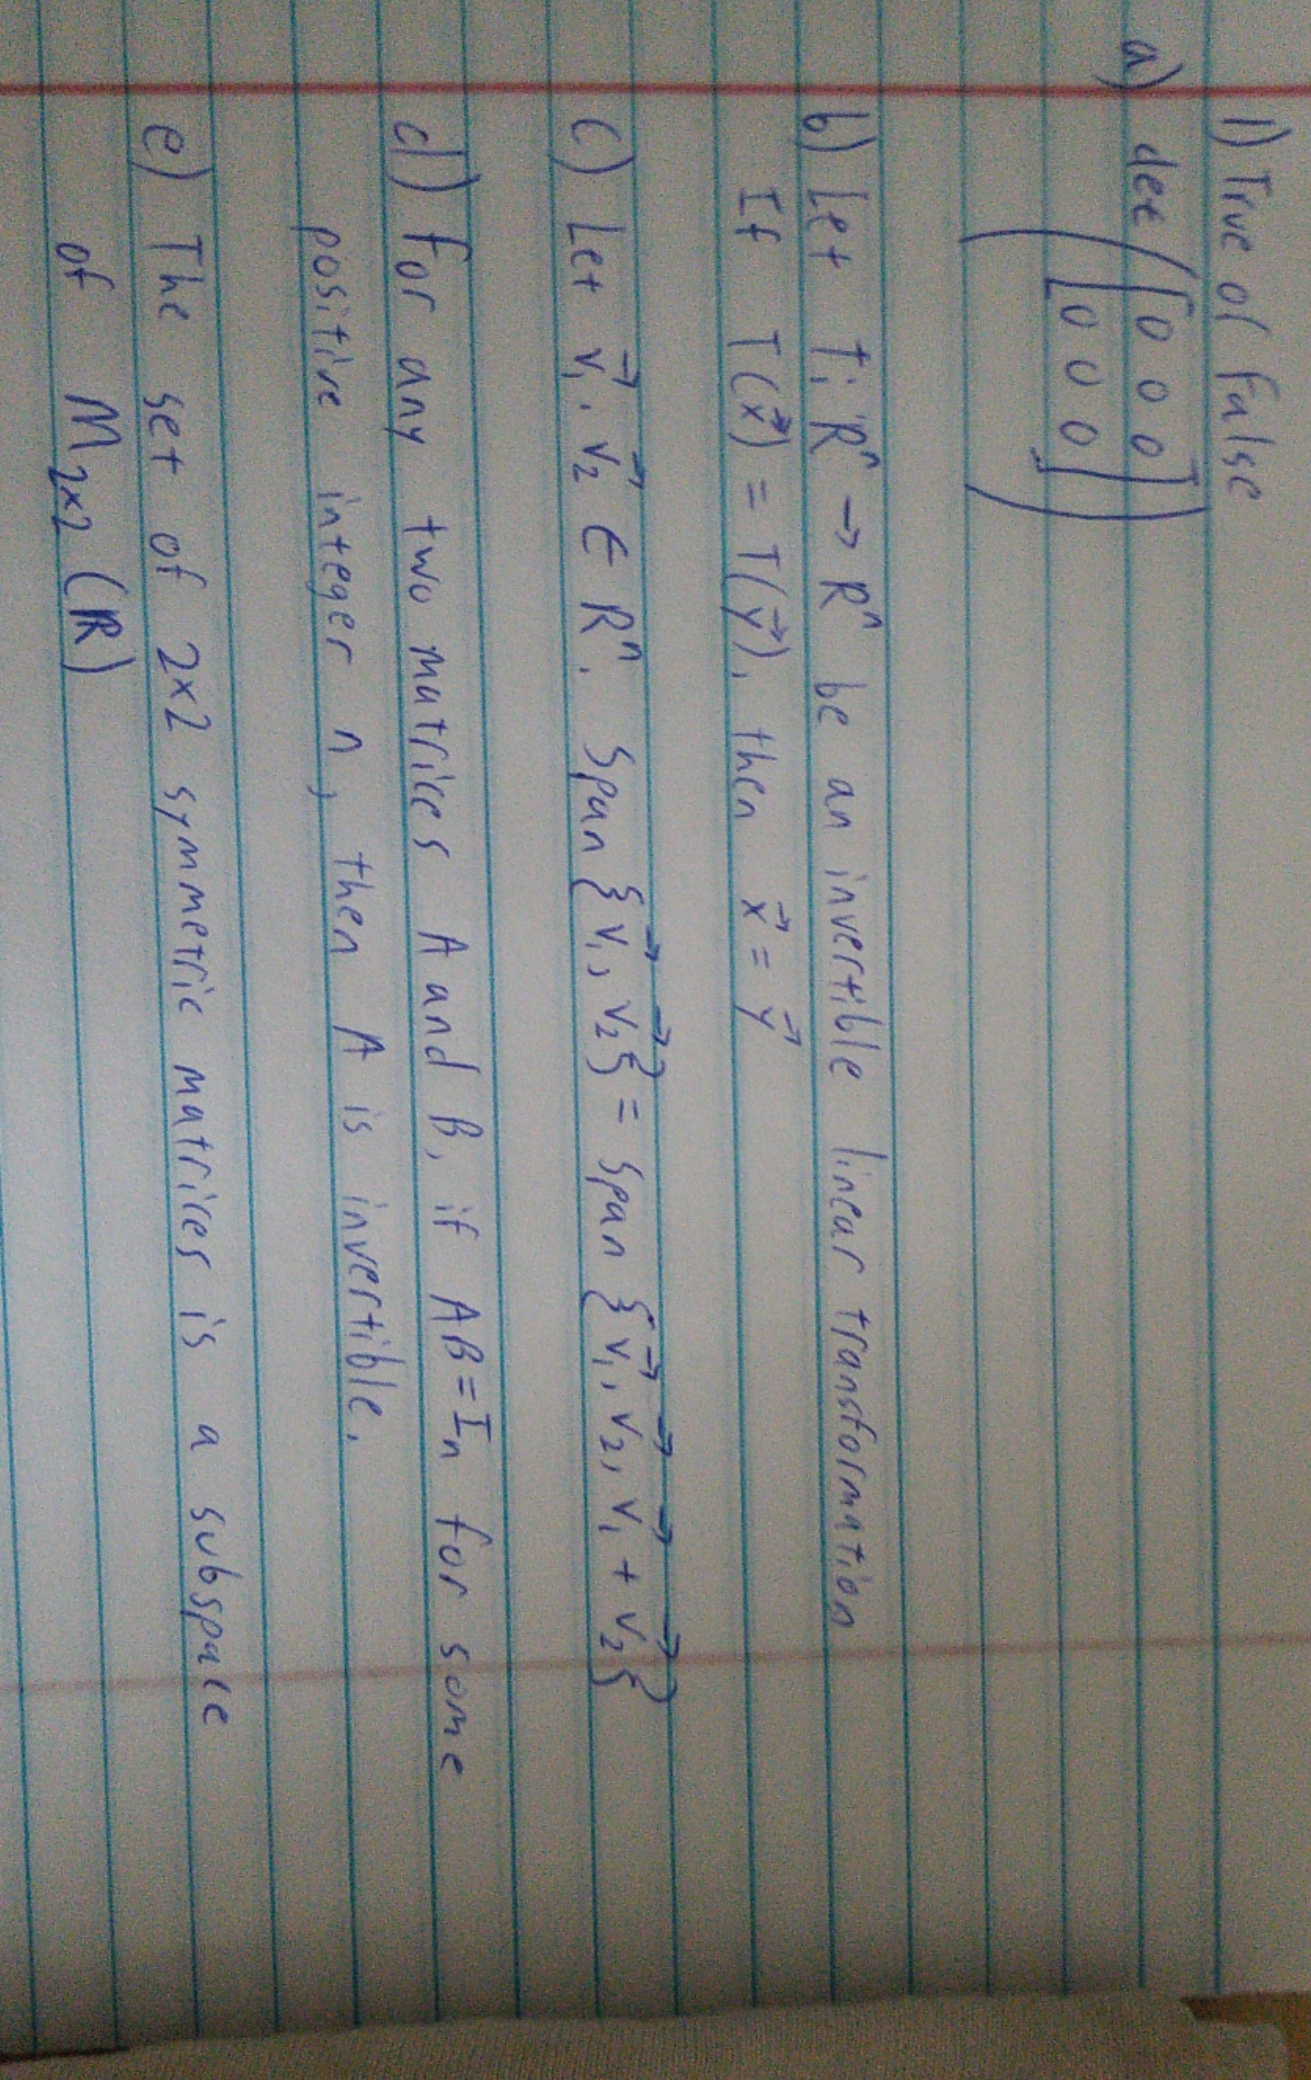 1) True or False
a) det ([0 0 0]
[0 0 0])
b) Let T: Rⁿ → Rⁿ be an invertible linear transformation
If T(x⃗) = T(y⃗), then x⃗ = y⃗
c) Let v⃗₁, v⃗₂ ∈ Rⁿ. Span {v⃗₁, v⃗₂} = Span {v⃗₁, v⃗₂, v⃗₁ + v⃗₂}
d) For any two matrices A and B, if AB = Iₙ for some
positive integer n, then A is invertible.
e) The set of 2x2 symmetric matrices is a subspace
of M₂ₓ₂ (ℝ)